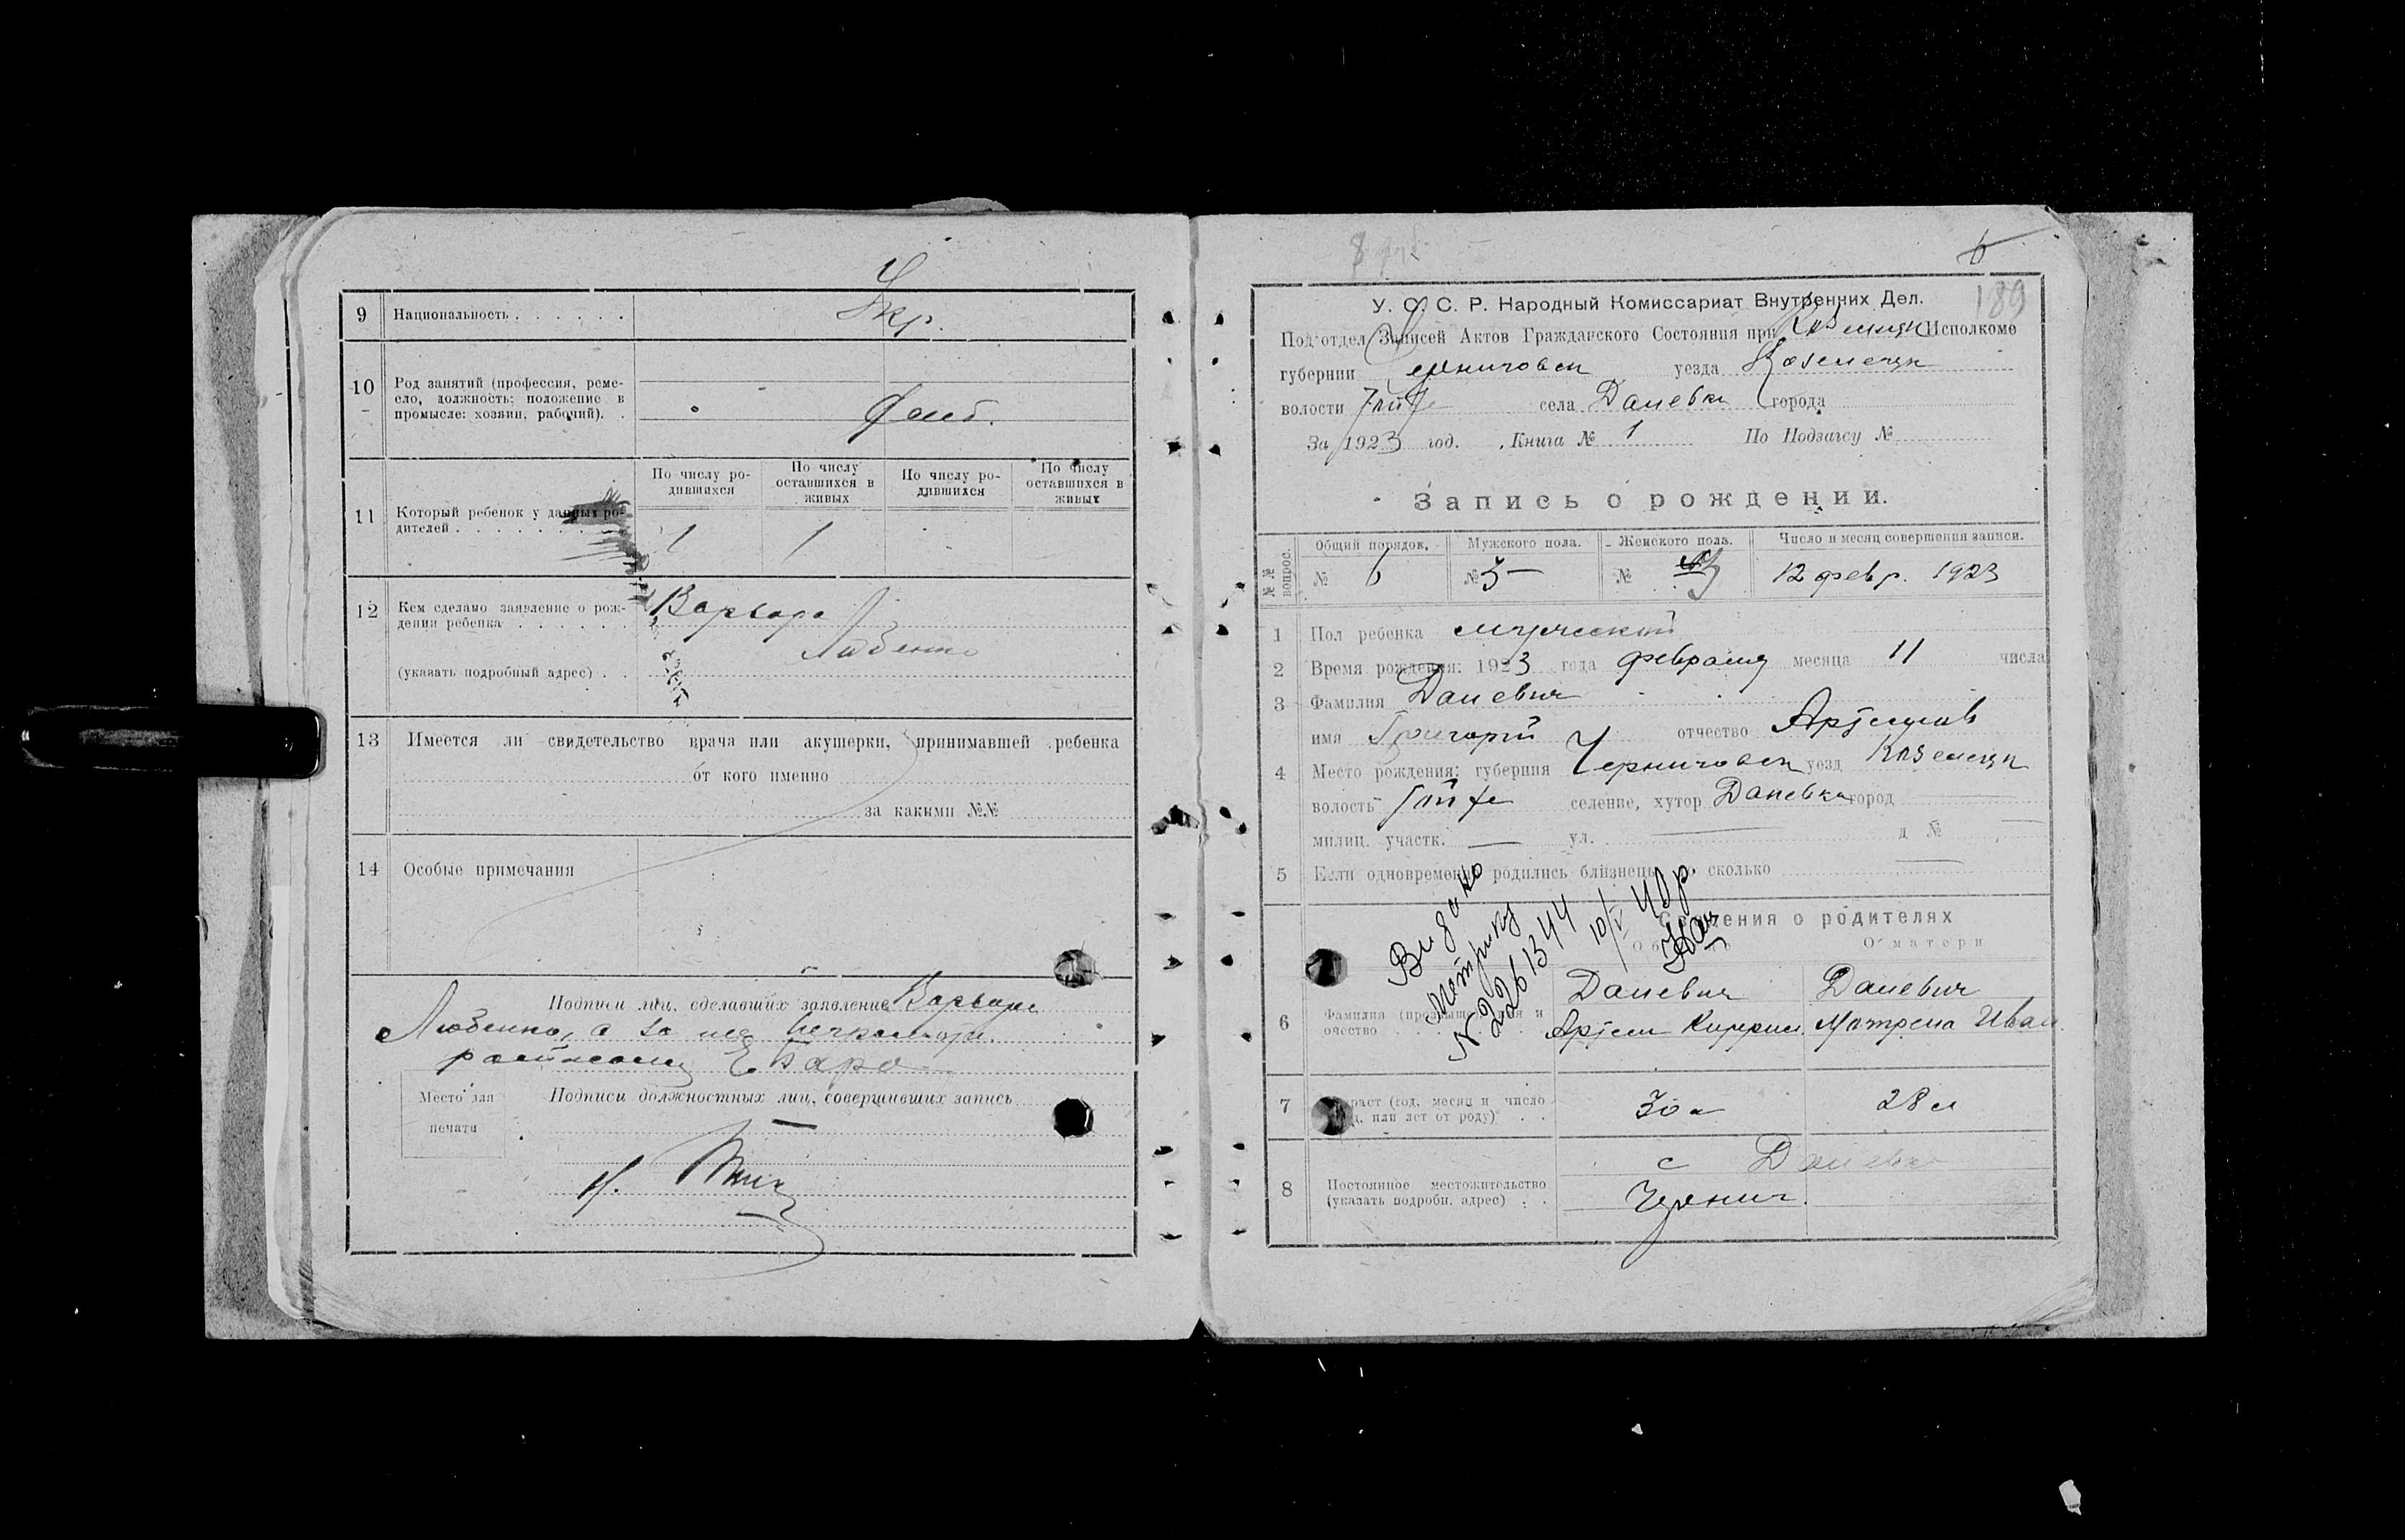 Укр.
9 Национальность . . . . . .
10 Род занятий (профессия, реме-
сло, должность; положение в
промысле: хозяин, рабочий). .
11 Который ребенок у данных ро-
дителей . . . . . . . . .
По числу ро-
дившихся
По числу
оставшихся в
живых
По числу ро-
дившихся
По числу
оставшихся в
живых
1 1
12 Кем сделано заявление о рож-
дении ребенка . . . . . .
(указать подробный адрес) . .
Варвара
Любенко
13 Имеется ли свидетельство врача или акушерки, принимавшей ребенка
от кого именно
за какими №№
14 Особые примечания
Подписи лиц, сделавших заявление Варвара
Любенко, а за нея неграмотн.
Место для
печати
Подписи должностных лиц, совершивших запись
6
189
У. С. С. Р. Народный Комиссариат Внутренних Дел.
Подотдел Записей Актов Гражданского Состояния при Исполкоме
губернии Черниговск уезда Козелецк
волости села Даневки города
За 1923 год. Книга № 1 По Подзагсу №
Запись о рождении.
№№ вопрос.
Общий порядок. Мужского пола. Женского пола. Число и месяц совершения записи.
№ 6 № 5 № 12 февр. 1923
1 Пол ребенка мужеский
2 Время рождения: 1923 года февраля месяца 11 числа
3 Фамилия Даневич
имя Григорий отчество Артемов
4 Место рождения: губерния Черниговск уезд Козелецк
волость селение, хутор Даневка город
милиц. участк. — ул. — д №
5 Если одновременно родились близнецы, сколько
Видано
метрику
N 2261344
10/V 40р
Сведения о родителях
О матери
6
Даневич Даневич
Артем Матрена Иван.
7 Возраст (год, месяц и число
или лет от роду) . .
30 л 28 л
8 Постоянное местожительство
(указать подробн. адрес) . .
с Даневка
Чернич.